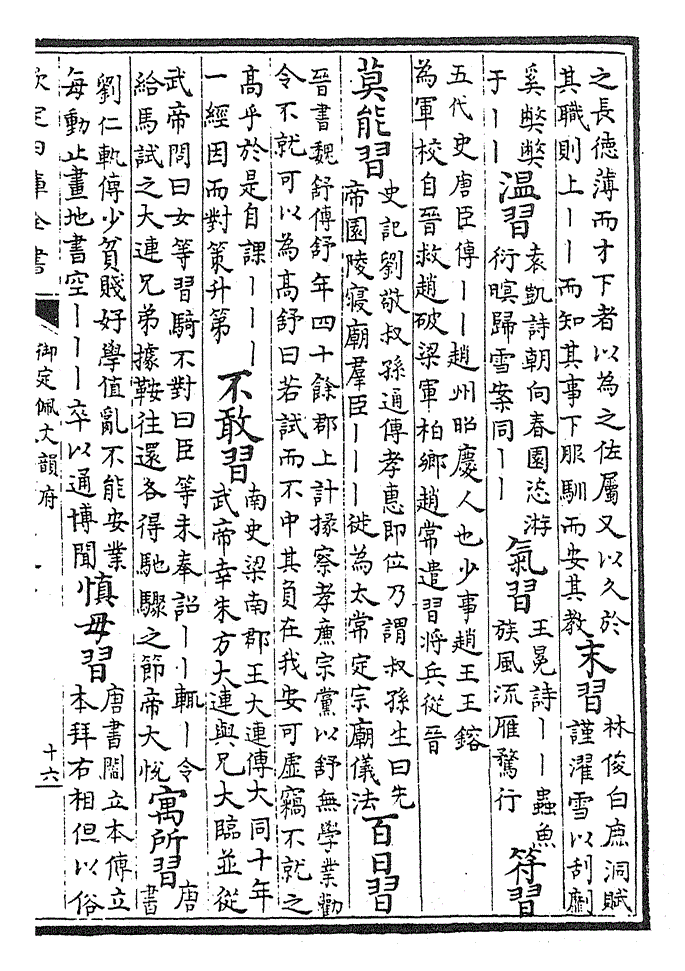 之長德薄而才下者以為之佐屬又以久於
其職則上丨丨而知其事下服馴而安其教
末習
林俊白鹿洞賦
謹濯雪以刮劘
奚獘獘
于丨丨
溫習
袁凱詩朝向春園恣游
衍暝歸雪案同丨丨
氣習
王冕詩丨丨蟲魚
族風流雁鶩行
符習
五代史唐臣傳丨丨趙州昭慶人也少事趙王王鎔
為軍校自晉救趙破梁軍柏鄉趙常遣習將兵從晉
莫能習
史記劉敬叔孫通傳孝惠即位乃謂叔孫生曰先
帝園陵寢廟羣臣丨丨丨徙為太常定宗廟儀法
百日習
晉書魏舒傳舒年四十餘郡上計掾察孝廉宗黨以舒無學業勸
令不就可以為高舒曰若試而不中其負在我安可虛竊不就之
高乎於是自課丨丨丨
一經因而對策升第
不敢習
南史梁南郡王大連傳大同十年
武帝幸朱方大連與兄大臨並從
武帝問曰女等習騎不對曰臣等未奉詔丨丨輒丨令
給馬試之大連兄弟據鞍往還各得馳驟之節帝大悅
寓所習
唐
書
劉仁軌傳少貧賤好學值亂不能安業
每動止畫地書空丨丨丨卒以通博聞
慎毋習
唐書閻立本傳立
本拜右相但以俗
欽定四庫全書
御定佩文韻府
十六